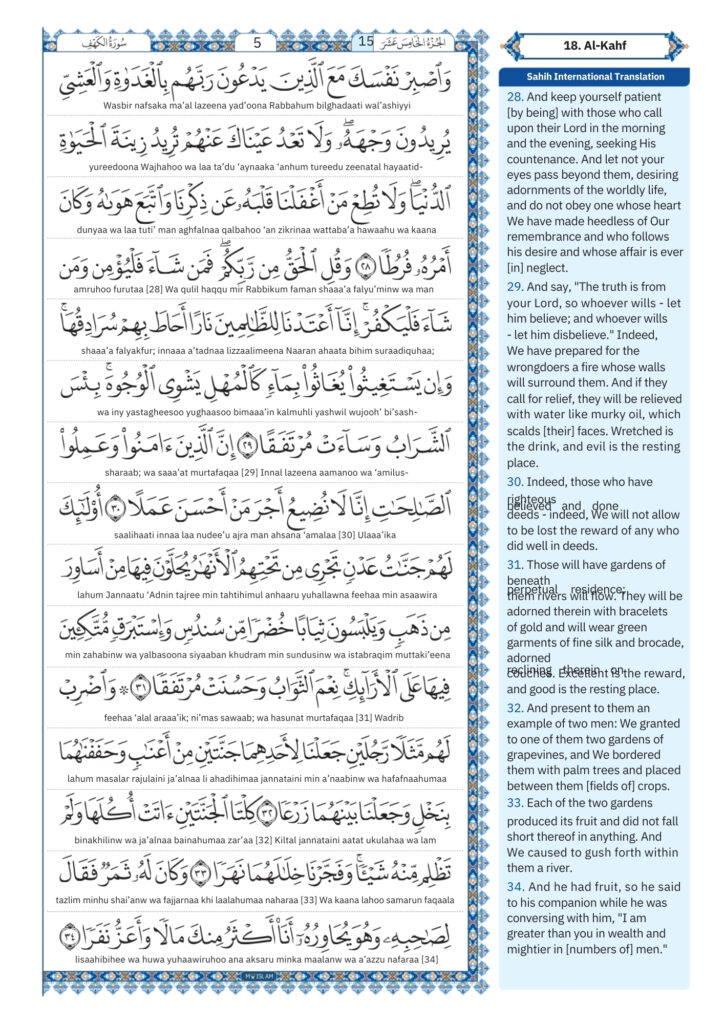 سُورَةُ الكَهْفِ
5
15
الجُزْءُ الخَامِسَ عَشَرَ
وَٱصْبِرْ نَفْسَكَ مَعَ ٱلَّذِينَ يَدْعُونَ رَبَّهُم بِٱلْغَدَوٰةِ وَٱلْعَشِىِّ
Wasbir nafsaka ma’al lazeena yad’oona Rabbahum bilghadaati wal’ashiyyi
يُرِيدُونَ وَجْهَهُۥۖ وَلَا تَعْدُ عَيْنَاكَ عَنْهُمْ تُرِيدُ زِينَةَ ٱلْحَيَوٰةِ
yureedoona Wajhahoo wa laa ta’du ‘aynaaka ‘anhum tureedu zeenatal hayaatid-
ٱلدُّنْيَاۖ وَلَا تُطِعْ مَنْ أَغْفَلْنَا قَلْبَهُۥ عَن ذِكْرِنَا وَٱتَّبَعَ هَوَىٰهُ وَكَانَ
dunyaa wa laa tuti’ man aghfalnaa qalbahoo ‘an zikrinaa wattaba’a hawaahu wa kaana
أَمْرُهُۥ فُرُطًا ٢٨ وَقُلِ ٱلْحَقُّ مِن رَّبِّكُمْۖ فَمَن شَآءَ فَلْيُؤْمِن وَمَن
amruhoo furutaa [28] Wa qulil haqqu mir Rabbikum faman shaaa’a falyu’minw wa man
شَآءَ فَلْيَكْفُرْۚ إِنَّآ أَعْتَدْنَا لِلظَّٰلِمِينَ نَارًا أَحَاطَ بِهِمْ سُرَادِقُهَاۚ
shaaa’a falyakfur; innaaa a’tadnaa lizzaalimeena Naaran ahaata bihim suraadiquhaa;
وَإِن يَسْتَغِيثُوا۟ يُغَاثُوا۟ بِمَآءٍ كَٱلْمُهْلِ يَشْوِى ٱلْوُجُوهَۚ بِئْسَ
wa iny yastagheesoo yughaasoo bimaaa’in kalmuhli yashwil wujooh’ bi’sash-
ٱلشَّرَابُ وَسَآءَتْ مُرْتَفَقًا ٢٩ إِنَّ ٱلَّذِينَ ءَامَنُوا۟ وَعَمِلُوا۟
sharaab; wa saaa’at murtafaqaa [29] Innal lazeena aamanoo wa ‘amilus-
ٱلصَّٰلِحَٰتِ إِنَّا لَا نُضِيعُ أَجْرَ مَنْ أَحْسَنَ عَمَلًا ٣٠ أُو۟لَٰٓئِكَ
saalihaati innaa laa nudee’u ajra man ahsana ‘amalaa [30] Ulaaa’ika
لَهُمْ جَنَّٰتُ عَدْنٍ تَجْرِى مِن تَحْتِهِمُ ٱلْأَنْهَٰرُ يُحَلَّوْنَ فِيهَا مِنْ أَسَاوِرَ
lahum Jannaatu ‘Adnin tajree min tahtihimul anhaaru yuhallawna feehaa min asaawira
مِن ذَهَبٍ وَيَلْبَسُونَ ثِيَابًا خُضْرًا مِّن سُندُسٍ وَإِسْتَبْرَقٍ مُّتَّكِـِٔينَ
min zahabinw wa yalbasoona siyaaban khudram min sundusinw wa istabraqim muttaki’eena
فِيهَا عَلَى ٱلْأَرَآئِكِۚ نِعْمَ ٱلثَّوَابُ وَحَسُنَتْ مُرْتَفَقًا ٣١ ۞ وَٱضْرِبْ
feehaa ‘alal araaa’ik; ni’mas sawaab; wa hasunat murtafaqaa [31] Wadrib
لَهُم مَّثَلًا رَّجُلَيْنِ جَعَلْنَا لِأَحَدِهِمَا جَنَّتَيْنِ مِنْ أَعْنَٰبٍ وَحَفَفْنَٰهُمَا
lahum masalar rajulaini ja’alnaa li ahadihimaa jannataini min a’naabinw wa hafafnaahumaa
بِنَخْلٍ وَجَعَلْنَا بَيْنَهُمَا زَرْعًا ٣٢ كِلْتَا ٱلْجَنَّتَيْنِ ءَاتَتْ أُكُلَهَا وَلَمْ
binakhilinw wa ja’alnaa bainahumaa zar’aa [32] Kiltal jannataini aatat ukulahaa wa lam
تَظْلِم مِّنْهُ شَيْـًٔاۚ وَفَجَّرْنَا خِلَٰلَهُمَا نَهَرًا ٣٣ وَكَانَ لَهُۥ ثَمَرٌ فَقَالَ
tazlim minhu shai’anw wa fajjarnaa khi laalahumaa naharaa [33] Wa kaana lahoo samarun faqaala
لِصَٰحِبِهِۦ وَهُوَ يُحَاوِرُهُۥٓ أَنَا۠ أَكْثَرُ مِنكَ مَالًا وَأَعَزُّ نَفَرًا ٣٤
lisaahibihee wa huwa yuhaawiruhoo ana aksaru minka maalanw wa a’azzu nafaraa [34]
M W ISLAM
18. Al-Kahf
Sahih International Translation
28. And keep yourself patient
[by being] with those who call
upon their Lord in the morning
and the evening, seeking His
countenance. And let not your
eyes pass beyond them, desiring
adornments of the worldly life,
and do not obey one whose heart
We have made heedless of Our
remembrance and who follows
his desire and whose affair is ever
[in] neglect.
29. And say, "The truth is from
your Lord, so whoever wills - let
him believe; and whoever wills
- let him disbelieve." Indeed,
We have prepared for the
wrongdoers a fire whose walls
will surround them. And if they
call for relief, they will be relieved
with water like murky oil, which
scalds [their] faces. Wretched is
the drink, and evil is the resting
place.
30. Indeed, those who have
righteous
believed and done
deeds - indeed, We will not allow
to be lost the reward of any who
did well in deeds.
31. Those will have gardens of
beneath
perpetual residence;
them rivers will flow. They will be
adorned therein with bracelets
of gold and will wear green
garments of fine silk and brocade,
adorned
reclining therein on
couches. Excellent is the reward,
and good is the resting place.
32. And present to them an
example of two men: We granted
to one of them two gardens of
grapevines, and We bordered
them with palm trees and placed
between them [fields of] crops.
33. Each of the two gardens
produced its fruit and did not fall
short thereof in anything. And
We caused to gush forth within
them a river.
34. And he had fruit, so he said
to his companion while he was
conversing with him, "I am
greater than you in wealth and
mightier in [numbers of] men."